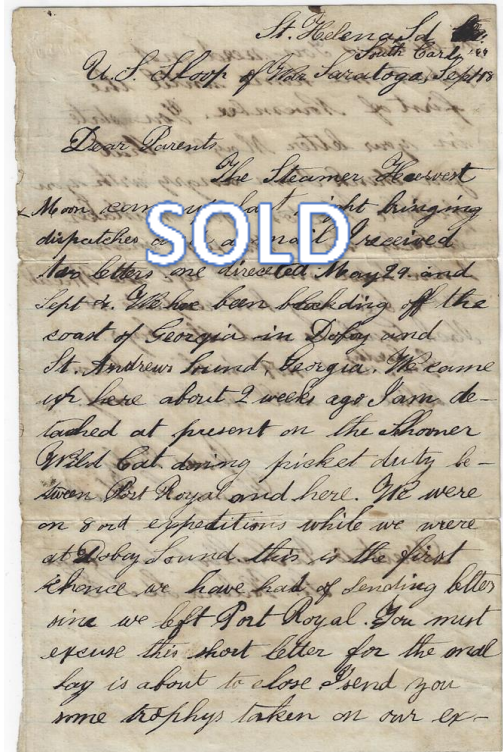 St. Helena Sd
South Carly
U. S. Sloop of War Saratoga, Sept 18
Dear Parents
The Steamer Harvest
Moon came up last night bringing
dispatches a mail I received
letters one directed May 29 and
Sept 2. We hve been blockding off the
coast of Georgia in Doboy and
St. Andrews Sound, Georgia. We came
up here about 2 weeks ago I am de-
tached at present on the Shooner
Wild Cat doing picket duty be-
tween Port Royal and here. We were
on 3 or 4 exppeditions while we were
at Doboy Sound this is the first
chance we have had of sending letter
sinc we left Port Royal. You must
excuse this short letter for the mail
bag is about to close I send you
some trophys taken on our ex-
SOLD